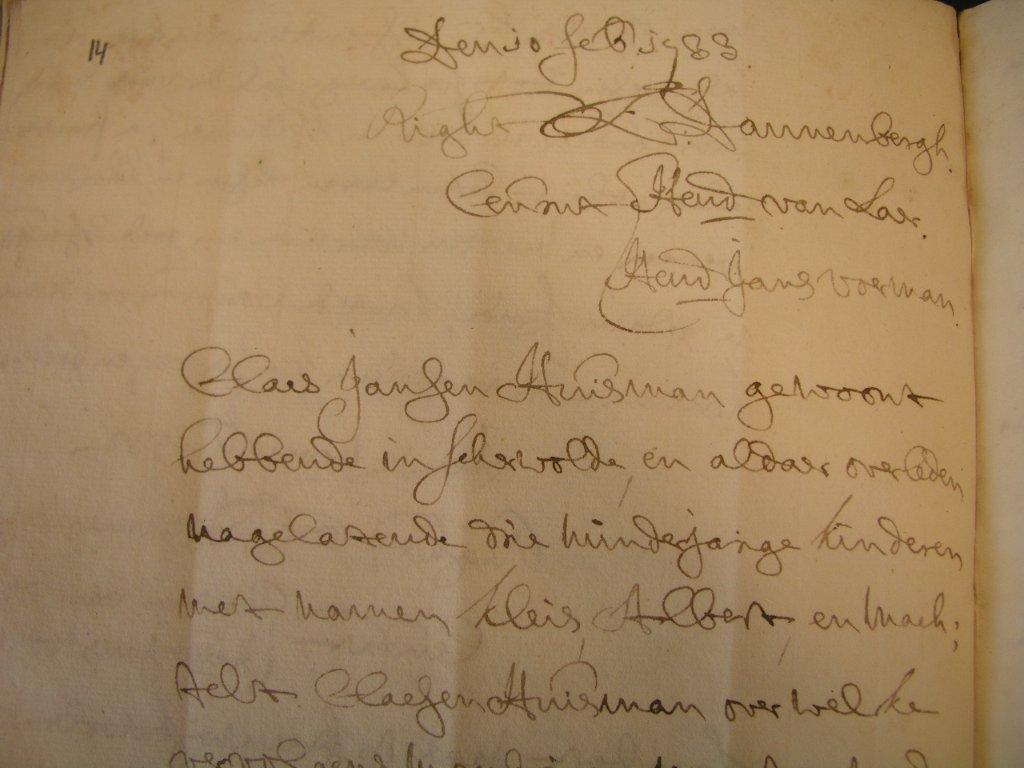 14
Den 10 feb. 1733.
Righter Dannenbergh.
Cenmt Hend van Laer.
Hend Jans vorman.
Claes Janssen Huisman gewoont
hebbende in scherwolde, en aldaer overleden
nagelatende drie minderjarige kinderen
met namen Kleis, Albert, en Mach;
telt Claessen Huisman over welke